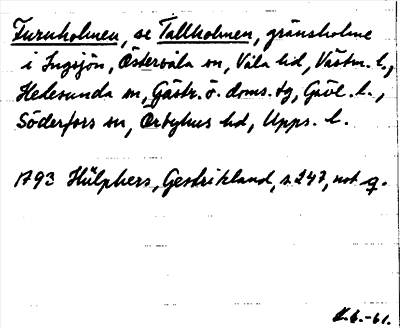 Furuholmen, se Tallholmen, gränsholme
i Ingsjön, Östervåla sn, Våla hd, Västm. l.,
Hedesunda sn, Gästr. ö. doms. tg, Gävl. l.,
Söderfors sn, Örbyhus hd, Upps. l.
1793 Hülphers, Gestrikland, s. 247, not q.
6.-61.